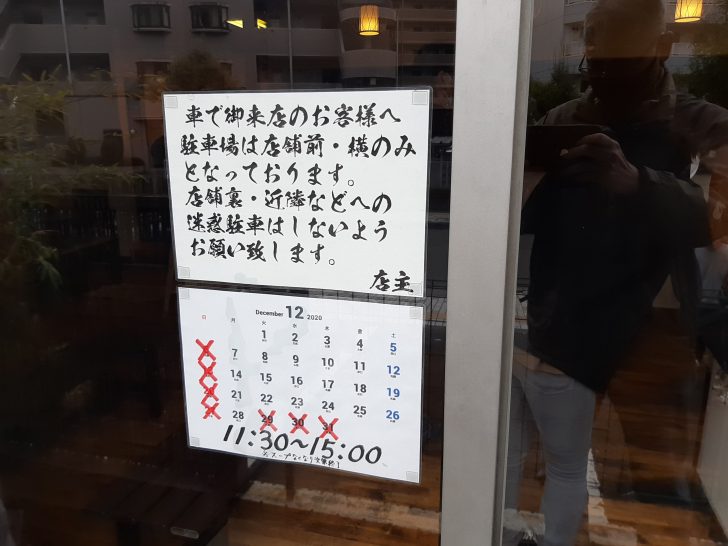 車で御来店のお客様へ
駐車場は店舗前・横のみ
となっております。
店舗裏・近隣などへの
迷惑駐車はしないよう
お願い致します。
店主
December 12 2020
日 月 火 水 木 金 土
1 2 3 4 5
7 8 9 10 11 12
14 15 16 17 18 19
21 22 23 24 25 26
28 29 30 31
11:30〜15:00
※スープなくなり次第終了